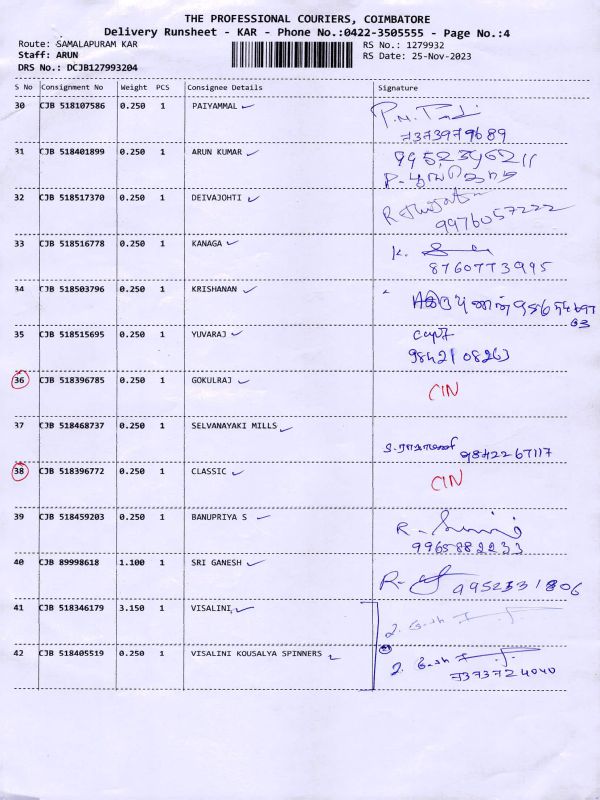 THE PROFESSIONAL COURIERS, COIMBATORE
Delivery Runsheet - KAR - Phone No.:0422-3505555 - Page No.:4
Route: SAMALAPURAM KAR
RS No.: 1279932
Staff: ARUN
RS Date: 25-Nov-2023
DRS No.: DCJB127993204
S No Consignment No Weight PCS Consignee Details Signature
30 CJB 518107586 0.250 1 PAIYAMMAL
7373979689
31 CJB 518401899 0.250 1 ARUN KUMAR
32 CJB 518517370 0.250 1 DEIVAJOHTI
9976057222
33 CJB 518516778 0.250 1 KANAGA K.
8760773995
34 CJB 518503796 0.250 1 KRISHANAN
35 CJB 518515695 0.250 1 YUVARAJ
9842108263
36 CJB 518396785 0.250 1 GOKULRAJ CIN
37 CJB 518468737 0.250 1 SELVANAYAKI MILLS
9842267117
38 CJB 518396772 0.250 1 CLASSIC CIN
39 CJB 518459203 0.250 1 BANUPRIYA S R.
9965882233
40 CJB 89998618 1.100 1 SRI GANESH R. 9952331806
41 CJB 518346179 3.150 1 VISALINI
42 CJB 518405519 0.250 1 VISALINI KOUSALYA SPINNERS
7373724040